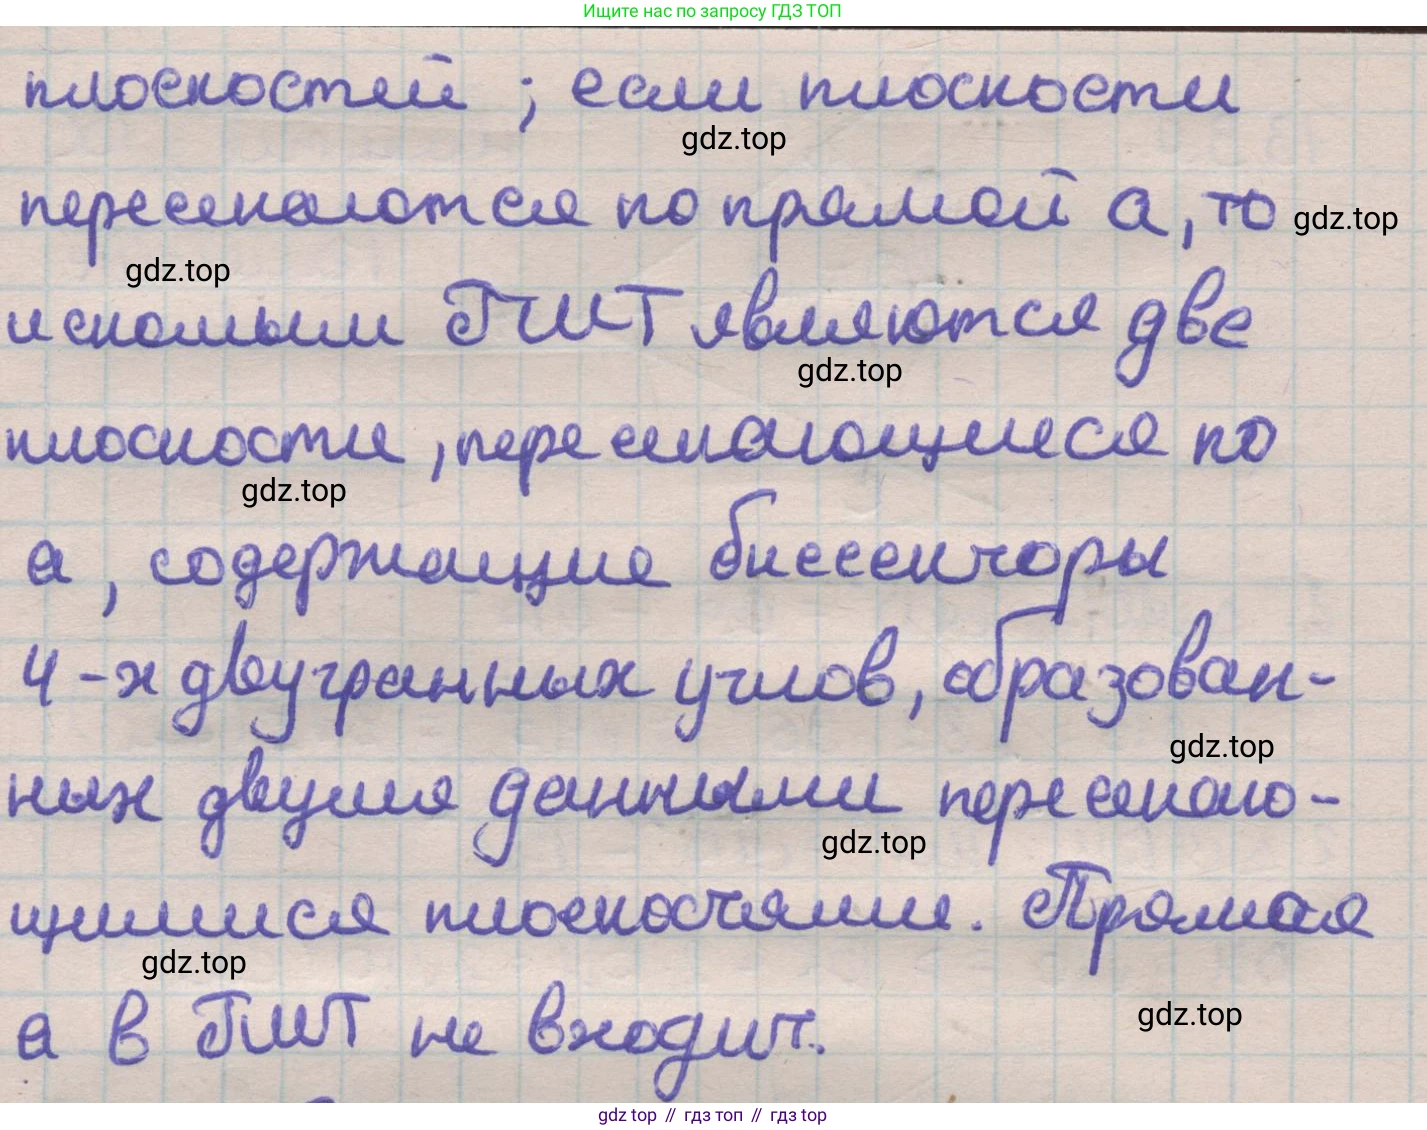 Ищите нас по запросу ГДЗ ТОП
плоскостей ; если плоскости
gdz.top
пересекаются по прямой а, то gdz.top
gdz.top
искомым ГМТ являются две
gdz.top
плоскости, пересекающиеся по
gdz.top
а, содержащие биссекторы
4-х двугранных углов, образован-
gdz.top
ных двумя данными пересекаю-
gdz.top
щимися плоскостями. Прямая
gdz.top
а в ГМТ не входит.
gdz.top
gdz top // гдз топ // гдз top